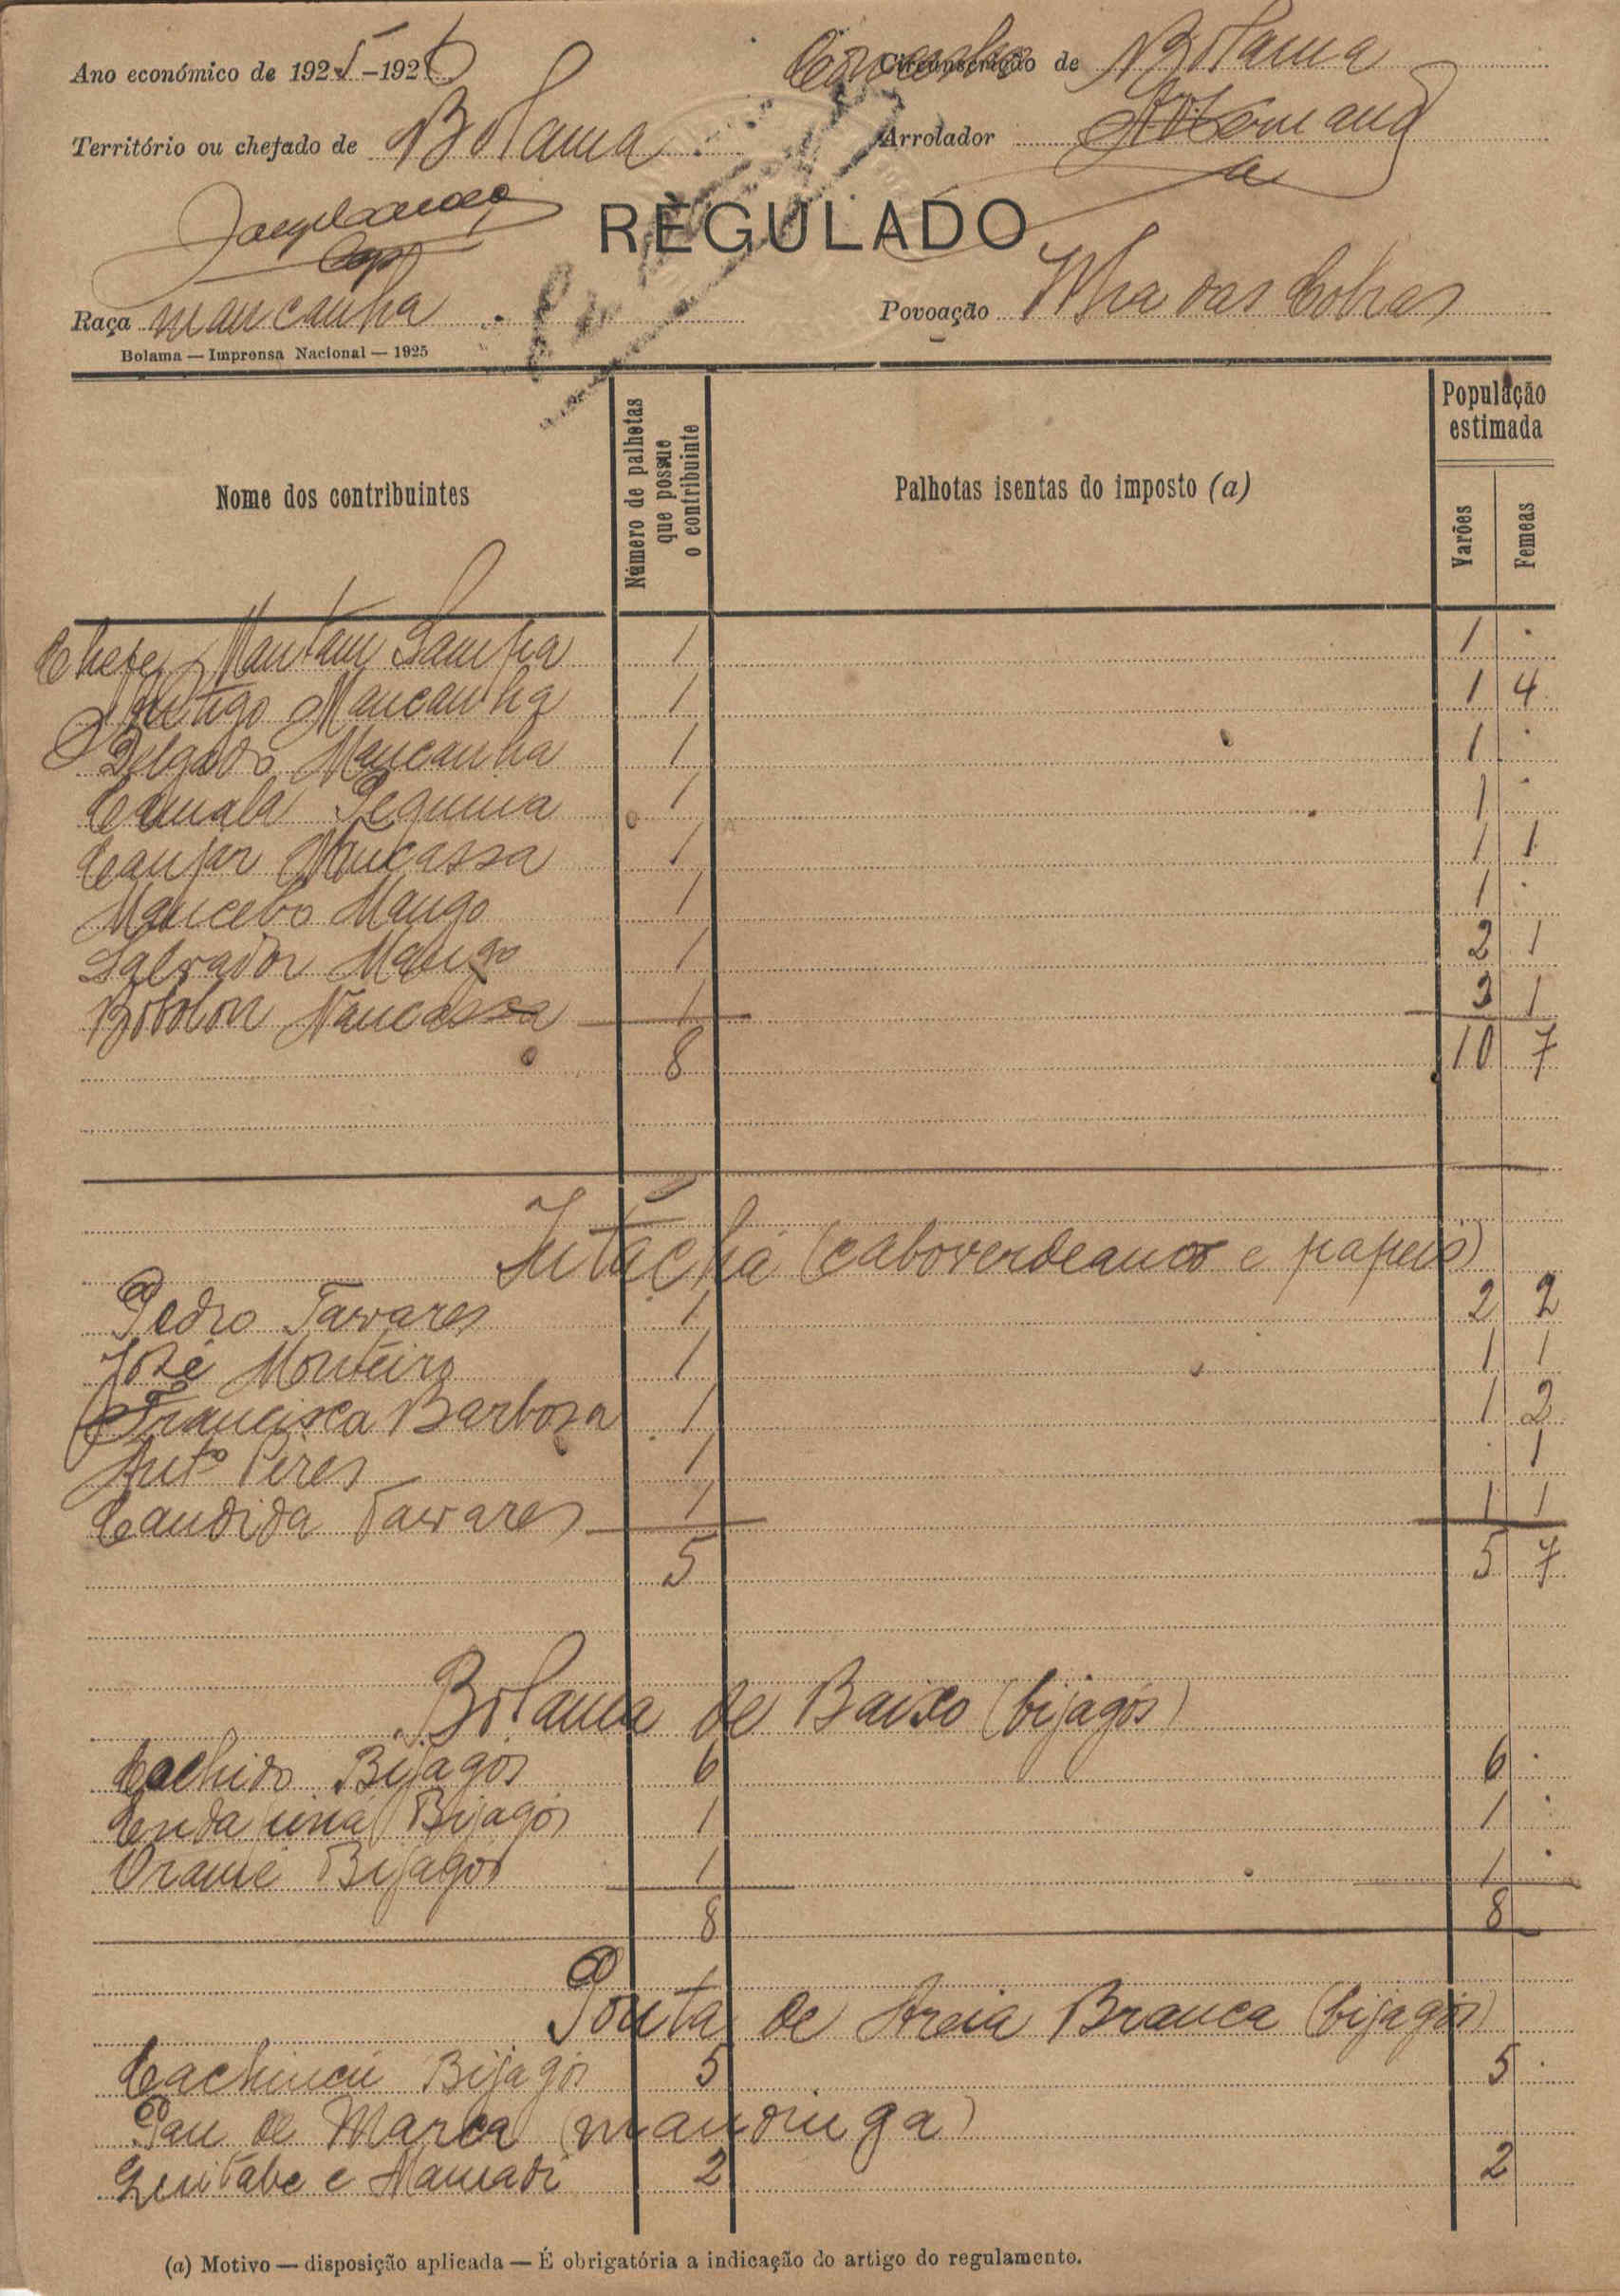 Ano económico de 1925-1926
Concelho de Bolama
Território ou chefado de Bolama
Arrolador
REGULADO
Raça mancanha
Povoação Ilha das Cobras
Bolama — Imprensa Nacional — 1925
Nome dos contribuintes
Número de palhotas que possue o contribuinte
Palhotas isentas do imposto (a)
População estimada
Varões
Femeas
Chefe, Mantam Sampa 1 1 .
Antigo Mancanha 1 1 4
Delgado Mancanha 1 1 .
Camala Pequina 1 1 .
Canfar Mucassa 1 1 1
Mancebo Mango 1 1 .
Salvador Mango 1 2 1
Bobolon Naucassa 1 3 1
8 10 7
Jutáchá (caboverdeanos e papeis)
Pedro Tavares 1 2 2
José Monteiro 1 1 1
Francisca Barbosa 1 1 2
Antº Pires 1 . 1
Candida Tavares 1 1 1
5 5 7
Bolama de Baixo (bijagós)
Cachido Bijagós 6 6 .
Bijagós 1 1 .
Oramé Bijagós 1 1 .
8 8
Ponta de Areia Branca (bijagós)
Cachincú Bijagós 5 5 .
Pau de Marca (mandinga)
Quitabe e Mamadi 2 2
(a) Motivo — disposição aplicada — É obrigatória a indicação do artigo do regulamento.